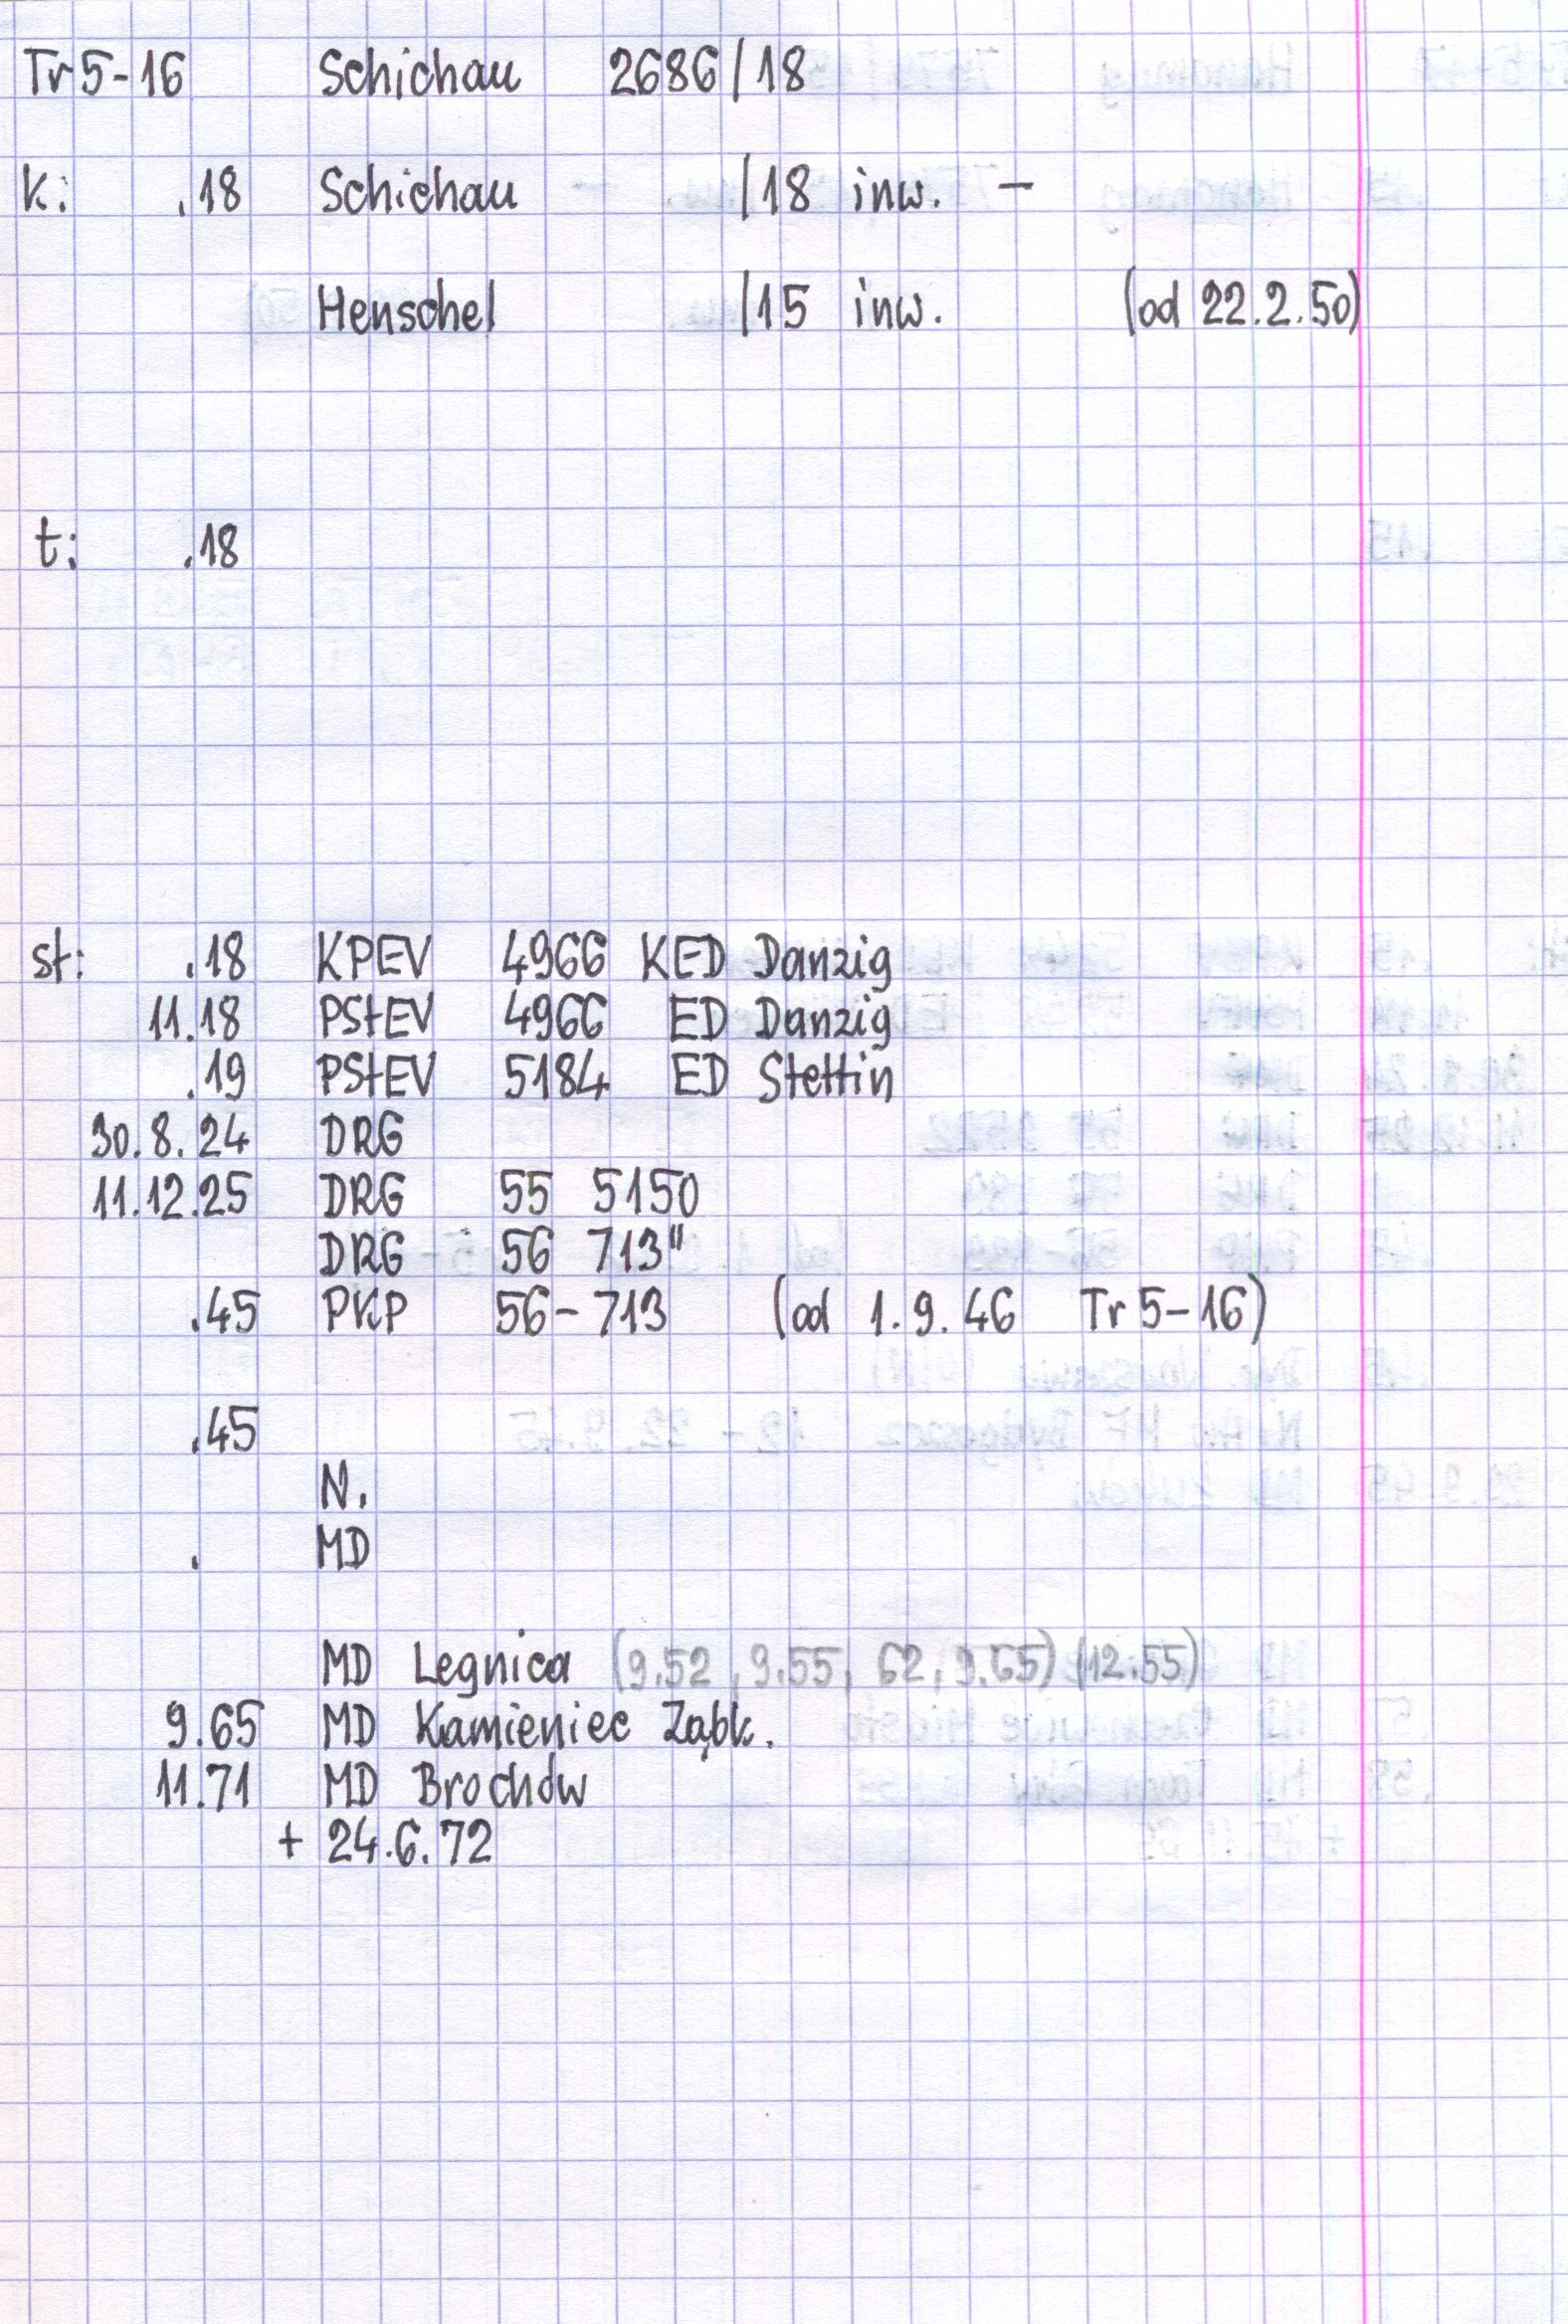 Tr5-16 Schichau 2686/18
k: .18 Schichau /18 inw. –
Henschel /15 inw. (od 22.2.50)
t: .18
st: .18 KPEV 4966 KED Danzig
11.18 PStEV 4966 ED Danzig
.19 PStEV 5184 ED Stettin
30.8.24 DRG
11.12.25 DRG 55 5150
DRG 56 713"
.45 PKP 56-713 (od 1.9.46 Tr5-16)
.45
N.
. MD
MD Legnica (9.52, 9.55, 62, 9.65) (12.55)
9.65 MD Kamieniec Ząbk.
11.71 MD Brochów
+ 24.6.72